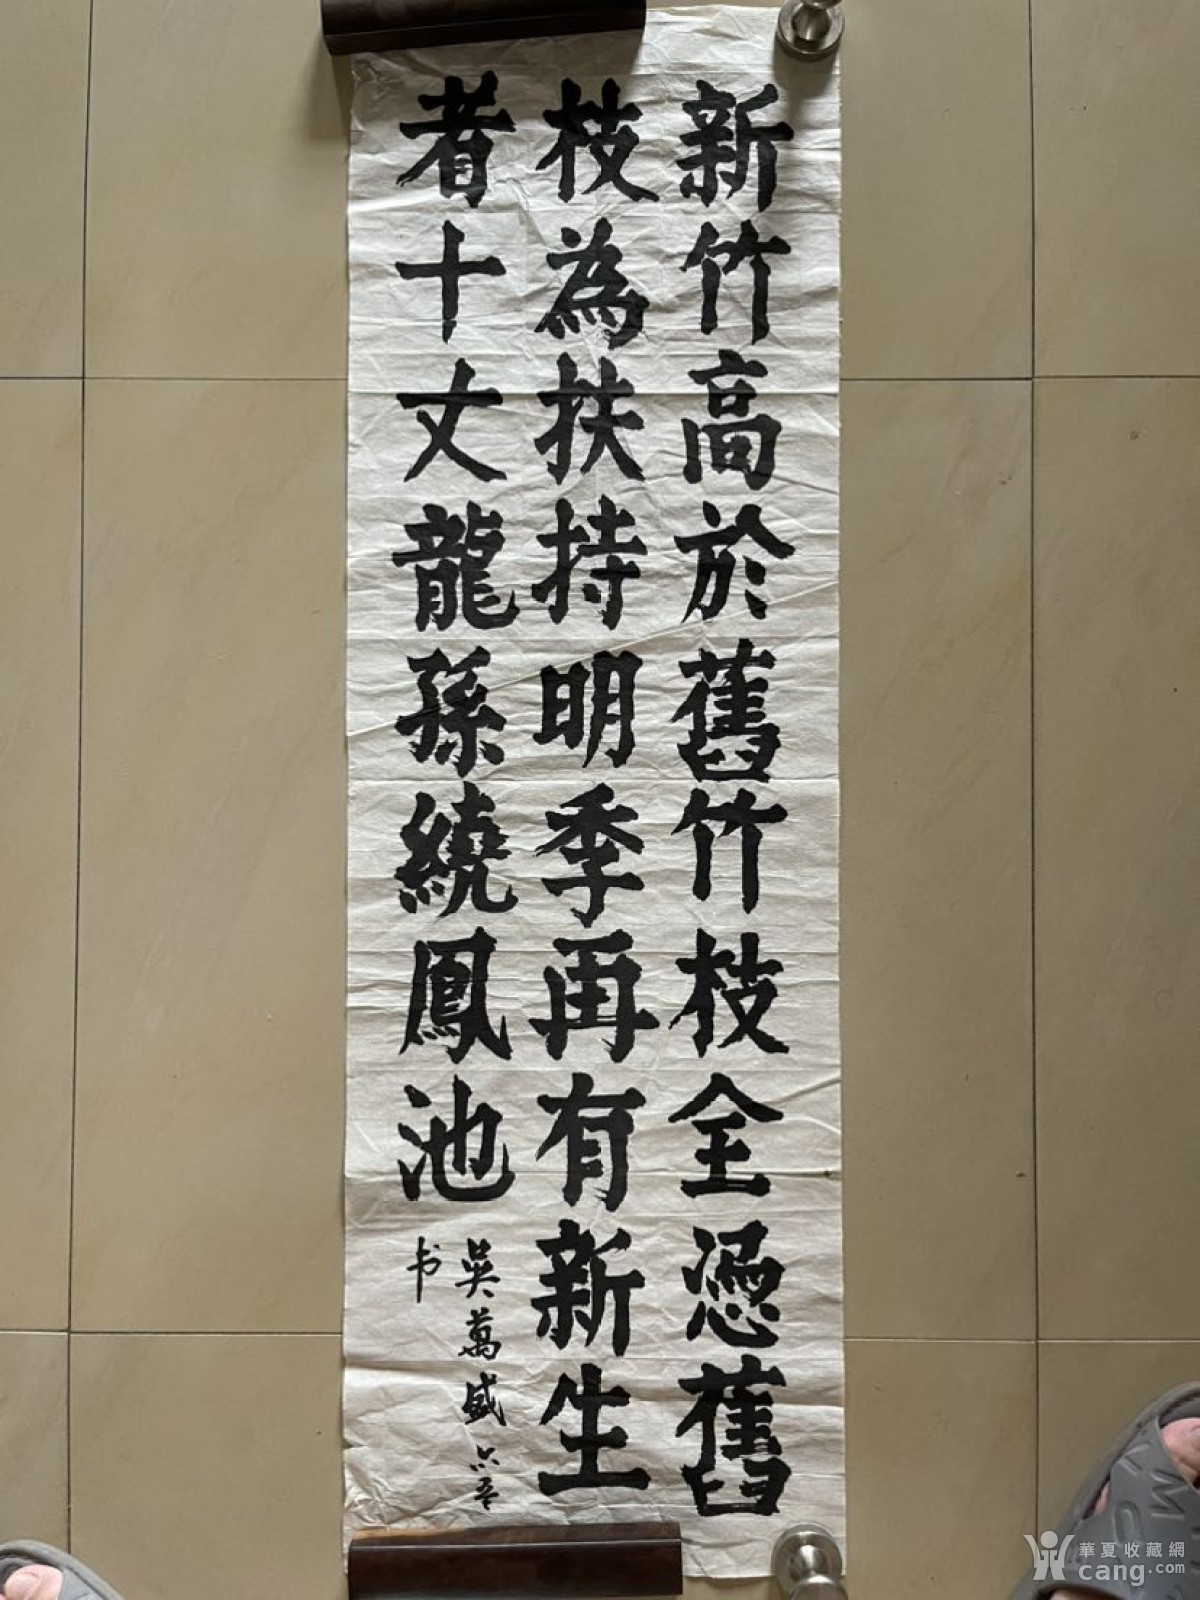 新竹高於舊竹枝全憑舊
枝為扶持明季再有新生
者十丈龍孫繞鳳池
吳萬盛六五
书
華夏收藏網
cang.com
MMO